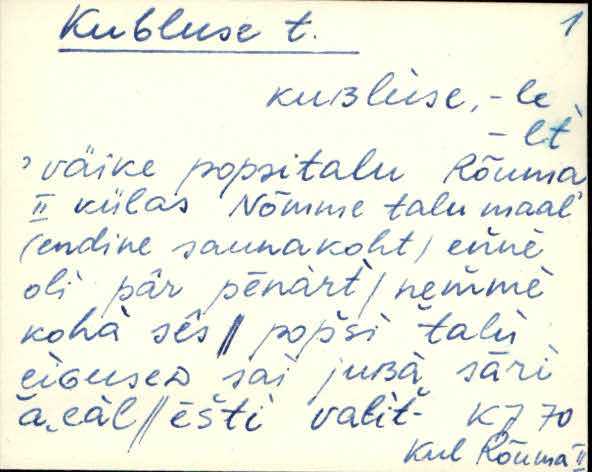 Kubluse t. 1
kuʙlùse, -le
-lt̀
' väike popsitalu Rõuma
II külas Nõmme talu maal'
(endine saunakoht) eǹnè
oli pâr pēnàrt̀ / nem̀mè
kohà sês // pop̀si talù
eiɢuseᴅ sai juʙà sāri
àeàl // ēšti valit- KJ 70
Kul Rõuma II